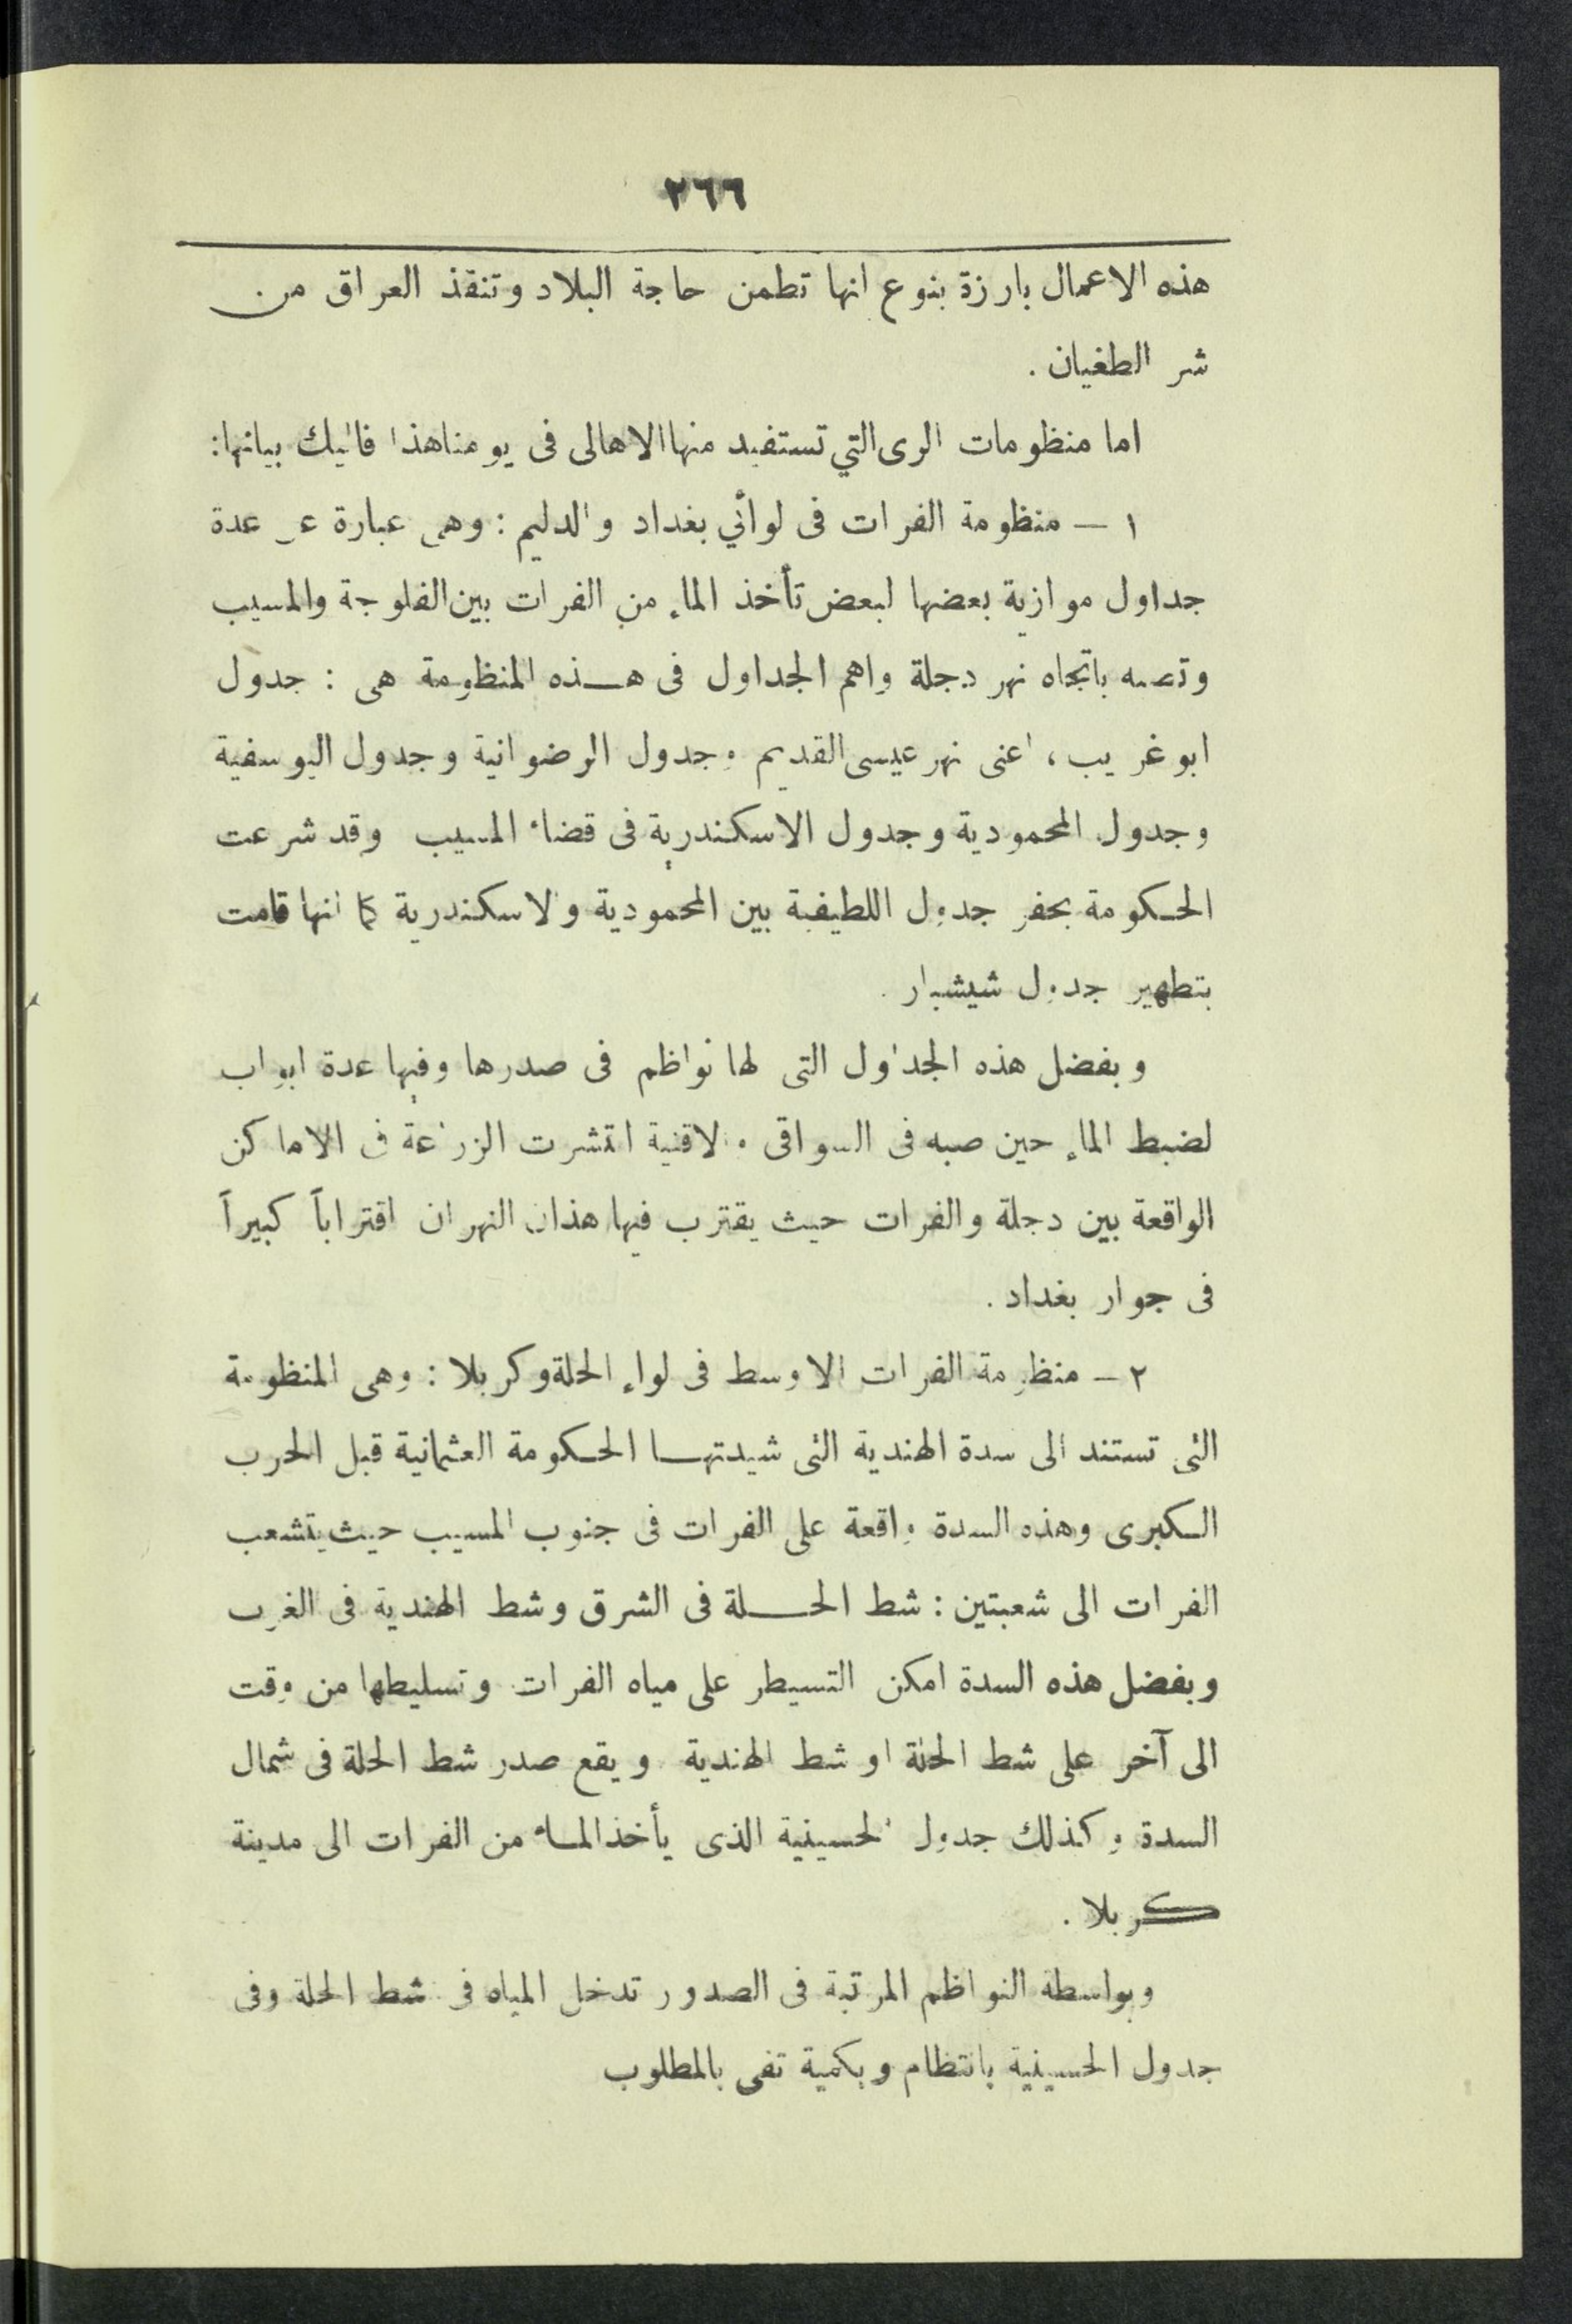 ٢٦٦
هذه الاعمال بارزة بنوع انها تطمن حاجة البلاد وتنقذ العراق من
شر الطغيان .
اما منظومات الرى التي تستفيد منها الاهالى فى يومنا هذا فاليك بيانها:
١ ــ منظومة الفرات فى لوائي بغداد والدليم : وهى عبارة عن عدة
جداول موازية بعضها لبعض تأخذ الماء من الفرات بين الفلوجة والمسيب
باتجاه نهر دجلة واهم الجداول فى هـذه المنظومة هى : جدول
ابو غريب ، اعنى نهر عيسى القديم وجدول الرضوانية وجدول اليوسفية
وجدول المحمودية وجدول الاسكندرية فى قضاء المسيب وقد شرعت
الحكومة بحفر جدول اللطيفية بين المحمودية والاسكندرية كما انها قامت
بتطهير جدول شيشبار .
وبفضل هذه الجداول التى لها نواظم فى صدرها وفيها عدة ابواب
لضبط الماء حين صبه فى السواقى والاقنية انتشرت الزراعة فى الاماكن
الواقعة بين دجلة والفرات حيث يقترب فيها هذان النهران اقتراباً كبيراً
فى جوار بغداد .
٢ ــ منظومة الفرات الاوسط فى لواء الحلة وكربلا : وهى المنظومة
التى تستند الى سدة الهندية التى شيدتهـا الحكومة العثمانية قبل الحرب
الكبرى وهذه السدة واقعة على الفرات فى جنوب المسيب حيث يتشعب
الفرات الى شعبتين : شط الحـلة فى الشرق وشط الهندية فى الغرب
وبفضل هذه السدة امكن التسيطر على مياه الفرات وتسليطها من وقت
الى آخر على شط الحلة او شط الهندية ويقع صدر شط الحلة فى شمال
السدة وكذلك جدول الحسينية الذى يأخذ المـاء من الفرات الى مدينة
كربلا .
وبواسطة النواظم المرتبة فى الصدور تدخل المياه فى شط الحلة وفى
جدول الحسينية بانتظام وبكمية تفى بالمطلوب